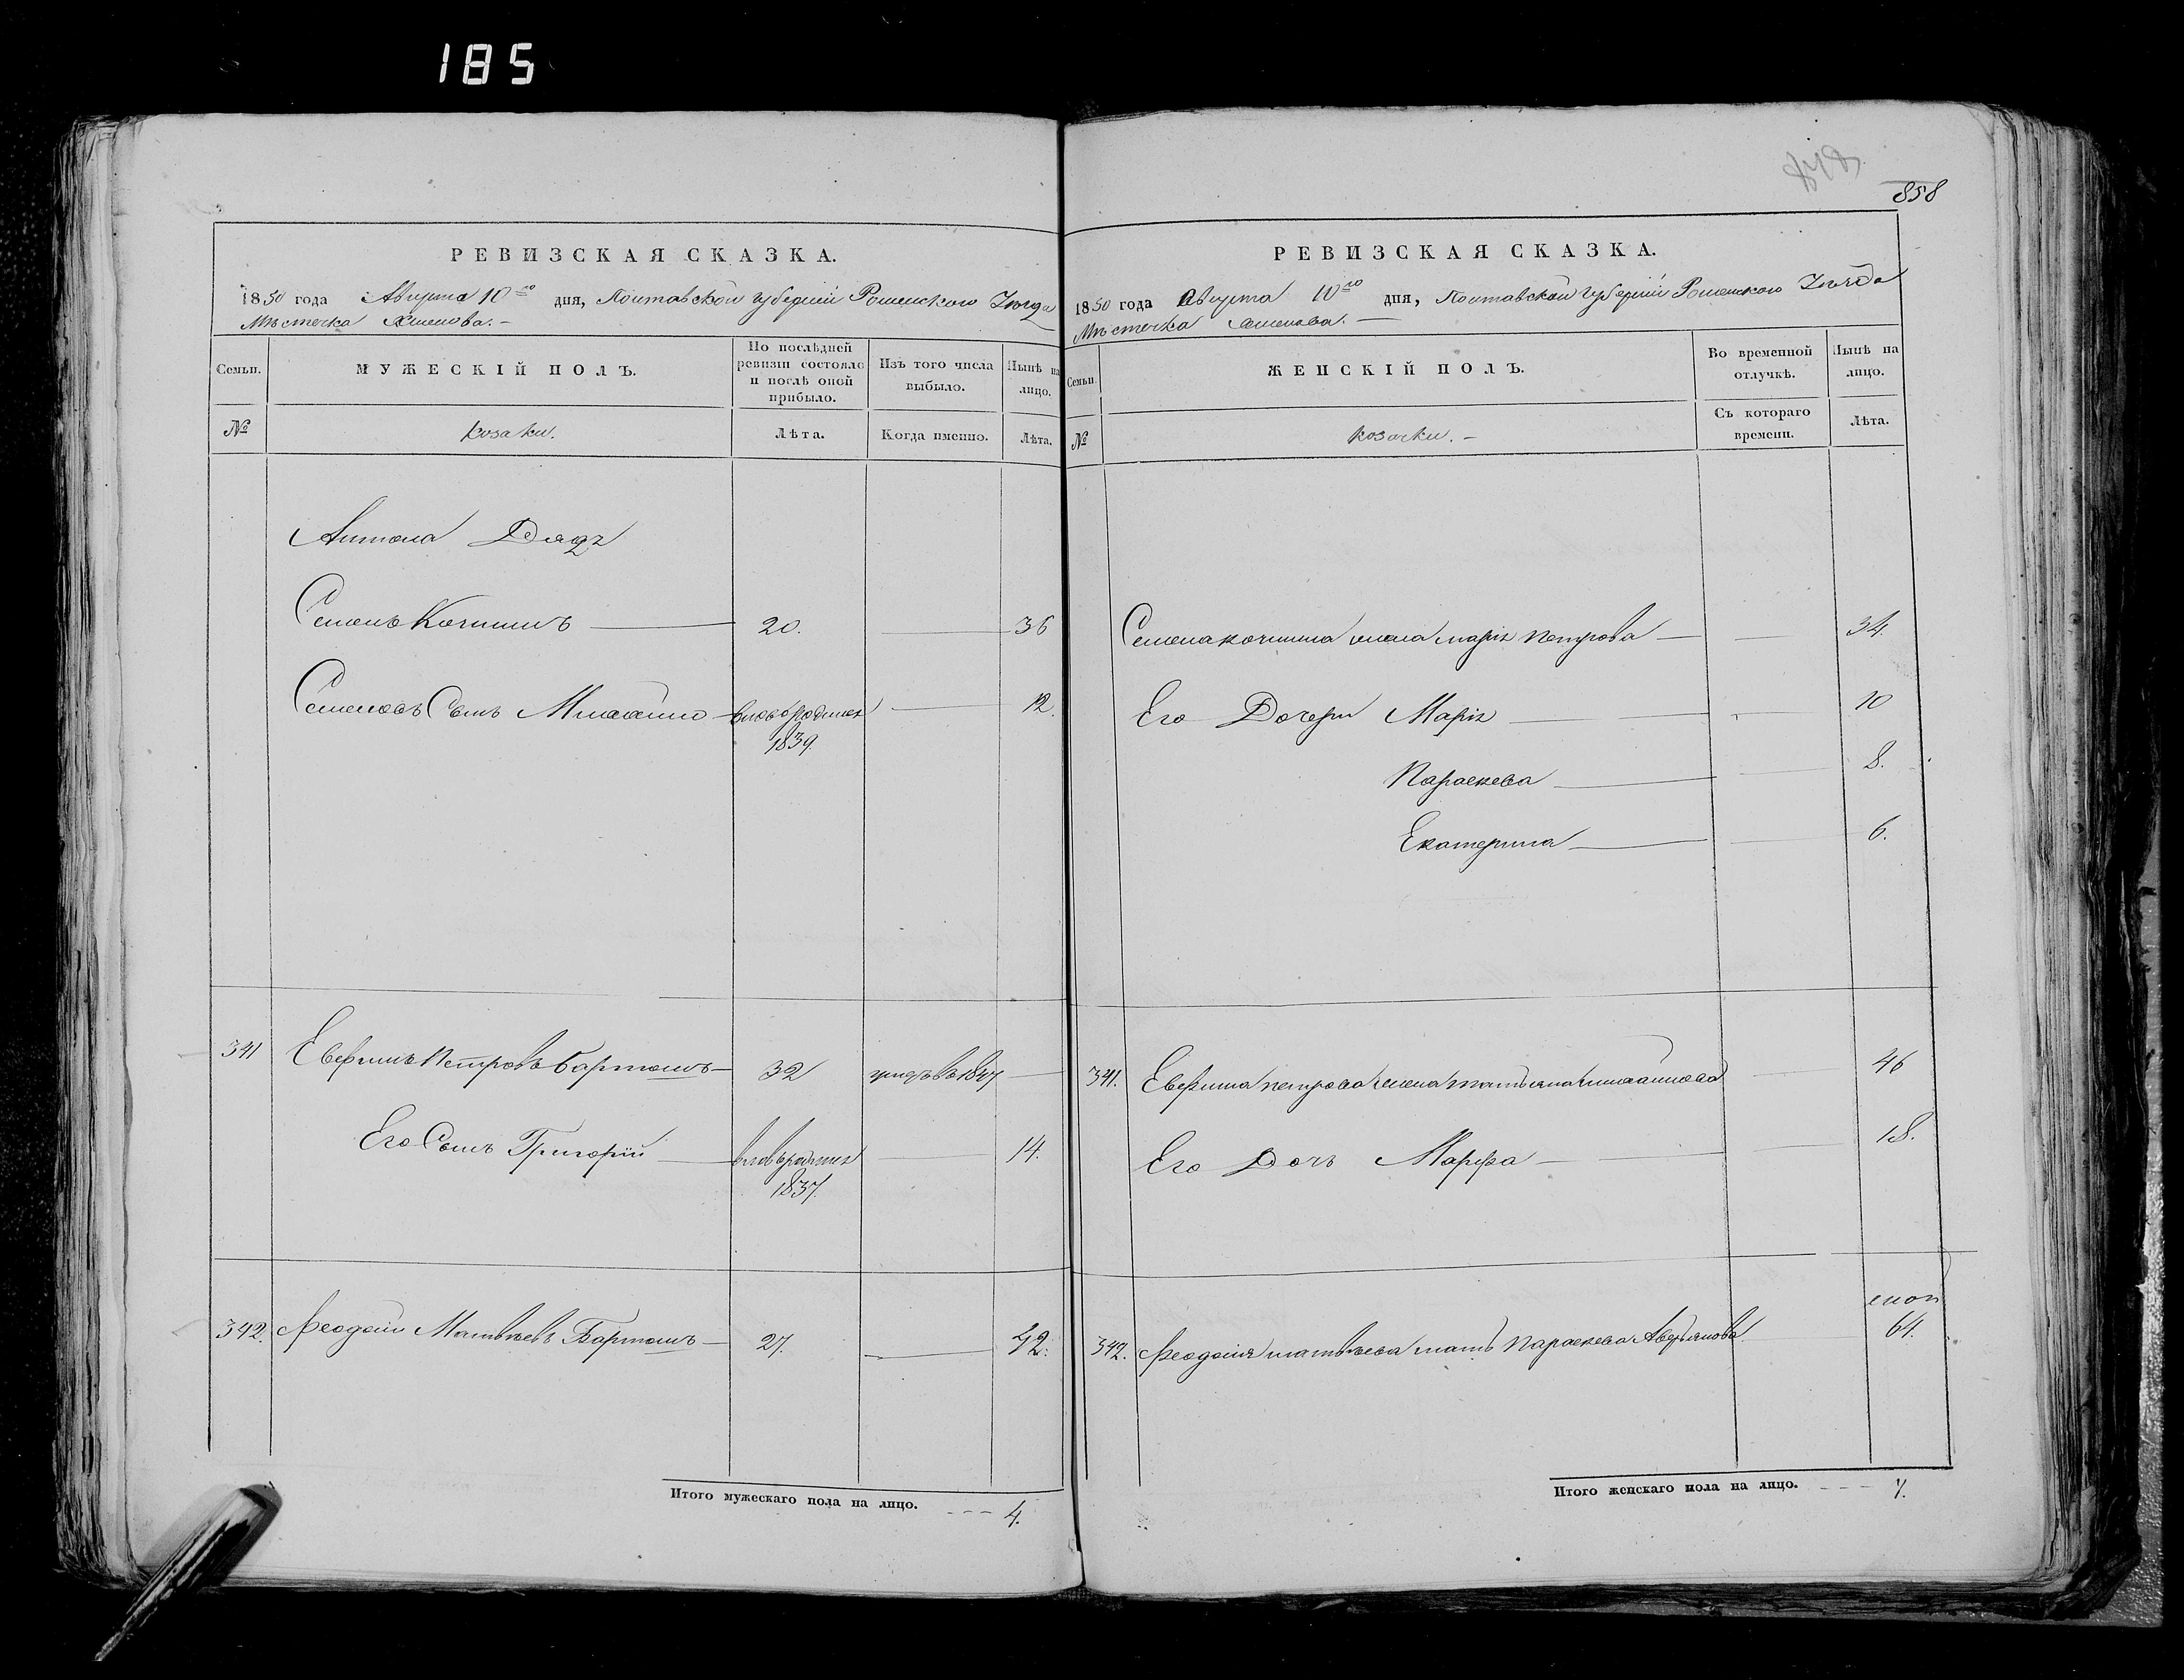 185
858
РЕВИЗСКАЯ СКАЗКА.
1850 года Августа 10го дня, Полтавской губернии Роменского Уезда
Мѣстечка
Семьи.
МУЖЕСКІЙ ПОЛЪ.
По послѣдней ревизіи состояло и послѣ оной прибыло.
Изъ того числа выбыло.
Нынѣ на лицо.
№
козаки.
Лѣта.
Когда именно.
Лѣта.
Антона Дядя
Семенъ 20. 36
Семеновъ Сынъ Михаило вновь родился 12.
1839.
341 Петровъ Бартошъ 32 умеръ въ 1847
Его Сынъ Григорій вновь родился 14.
1837.
342. Феодосій Матвѣевъ Бартошъ 27. 42.
Итого мужескаго пола на лицо. 4.
РЕВИЗСКАЯ СКАЗКА.
1850 года Августа 10го дня, Полтавской губернии Роменского Уезда
Мѣстечка
Семьи.
ЖЕНСКІЙ ПОЛЪ.
Во временной отлучкѣ.
Нынѣ на лицо.
№
козачки.
Съ котораго времени.
Лѣта.
Семена жена Марія Петрова 34.
Его Дочери Марія 10
Параскева 8.
Екатерина 6.
341. Петрова жена Татьяна Михайлова 46
Его Дочь Марфа 18.
342. Феодосія Матвѣева мать Параскева Аверьянова 64.
Итого женскаго пола на лицо. 7.